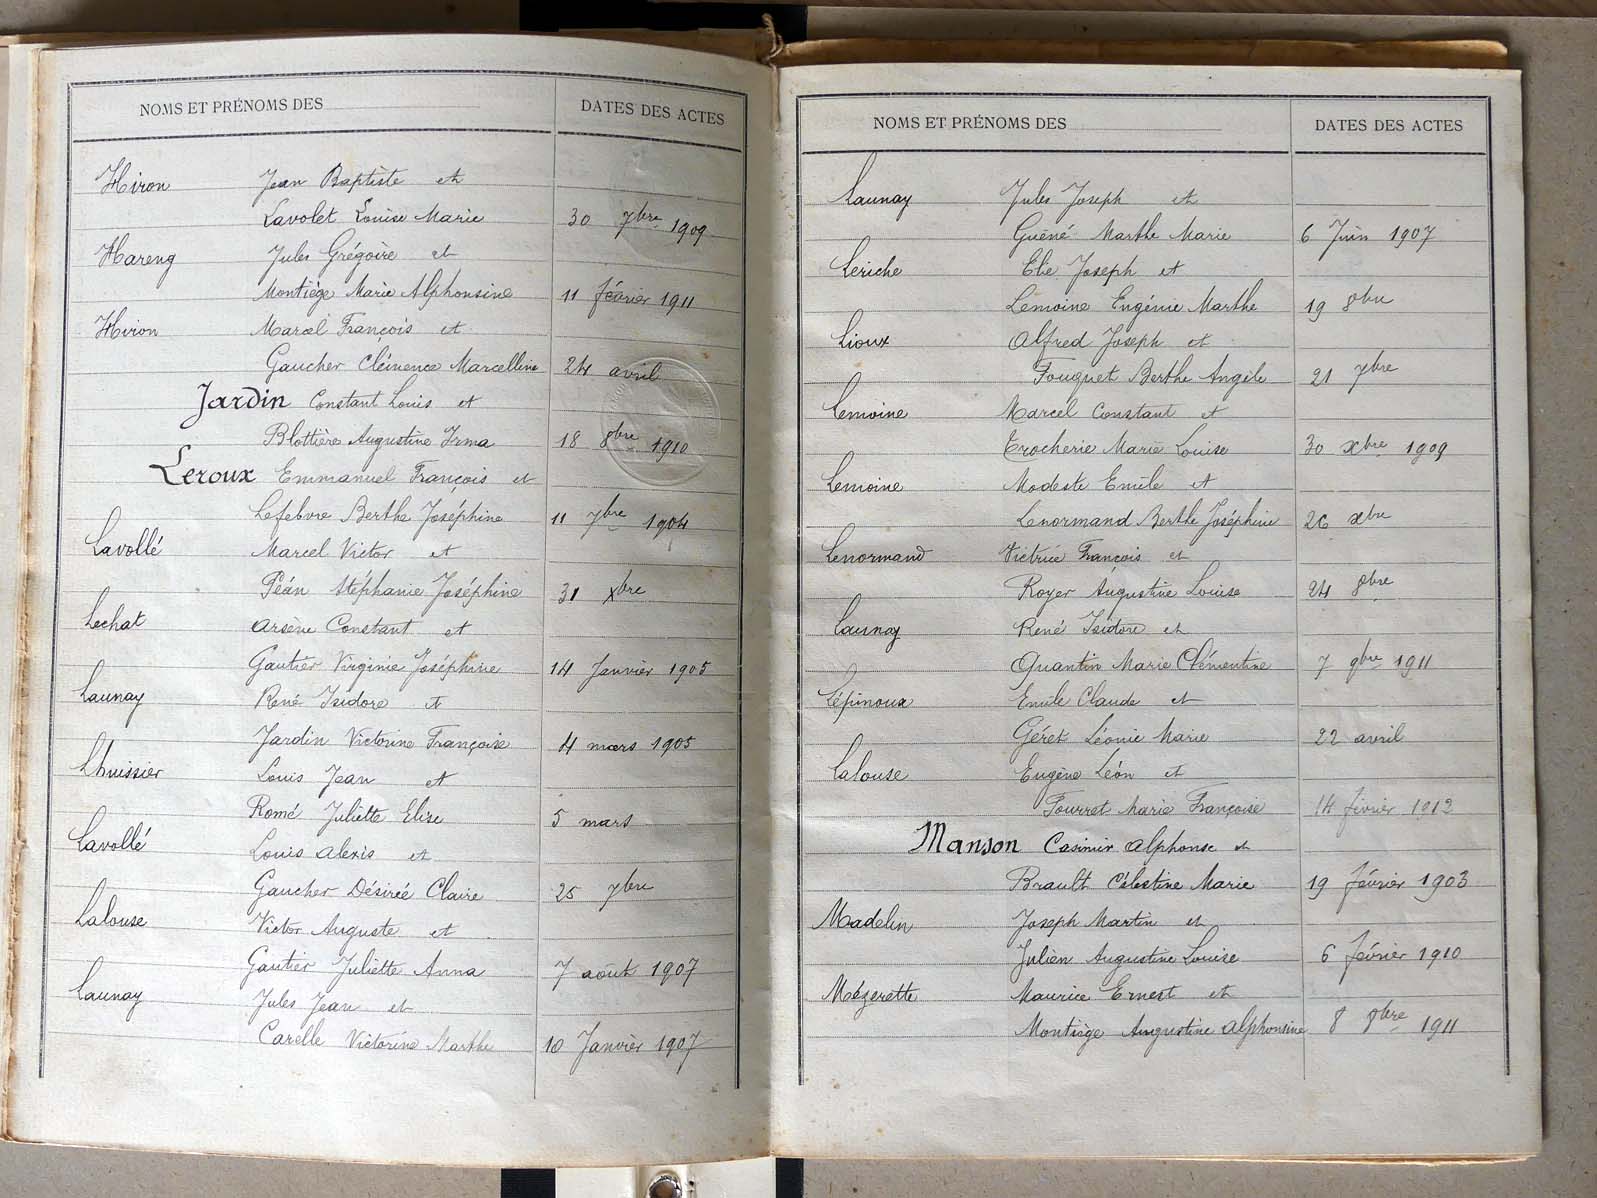 NOMS ET PRÉNOMS DES
DATES DES ACTES
Hiron Jean Baptiste et
Lavolet Louise Marie 30 7bre 1909
Hareng Jules Grégoire et
Montiége Marie Alphonsine 11 février 1911
Hiron Marcel François et
Gaucher Clémence Marcelline 24 avril
Jardin Constant Louis et
Blottière Augustine Irma 18 8bre 1910
Leroux Emmanuel François et
Lefebvre Berthe Joséphine 11 7bre 1904
Lavollé Marcel Victor et
Péan Stéphanie Joséphine 31 xbre
Lechat Arsène Constant et
Gautier Virginie Joséphine 14 Janvier 1905
Launay René Isidore et
Jardin Victorine Françoise 4 mars 1905
Lhuissier Louis Jean et
Romé Juliette Elise 5 mars
Lavollé Louis Alexis et
Gaucher Désirée Claire 25 7bre
Lalouse Victor Auguste et
Gautier Juliette Anna 7 août 1907
Launay Jules Jean et
Carelle Victorine Marthe 10 Janvier 1907
NOMS ET PRÉNOMS DES
DATES DES ACTES
Launay Jules Joseph et
Guéné Marthe Marie 6 Juin 1907
Leriche Elie Joseph et
Lemoine Eugénie Marthe 19 8bre
Lioux Alfred Joseph et
Fouquet Berthe Angèle 21 7bre
Lemoine Marcel Constant et
Trocherie Marie Louise 30 xbre 1909
Lemoine Modeste Emile et
Lenormand Berthe Joséphine 26 xbre
Lenormand Victrice François et
Royer Augustine Louise 24 8bre
Launay René Isidore et
Quantin Marie Clémentine 7 9bre 1911
Lépinoux Emile Claude et
Géret Léonie Marie 22 avril
Lalouse Eugène Léon et
Fourret Marie Françoise 14 février 1912
Manson Casimir Alphonse et
Brault Célestine Marie 19 février 1903
Madelin Joseph Martin et
Julien Augustine Louise 6 février 1910
Mézerette Maurice Ernest et
Montiège Augustine Alphonsine 8 8bre 1911